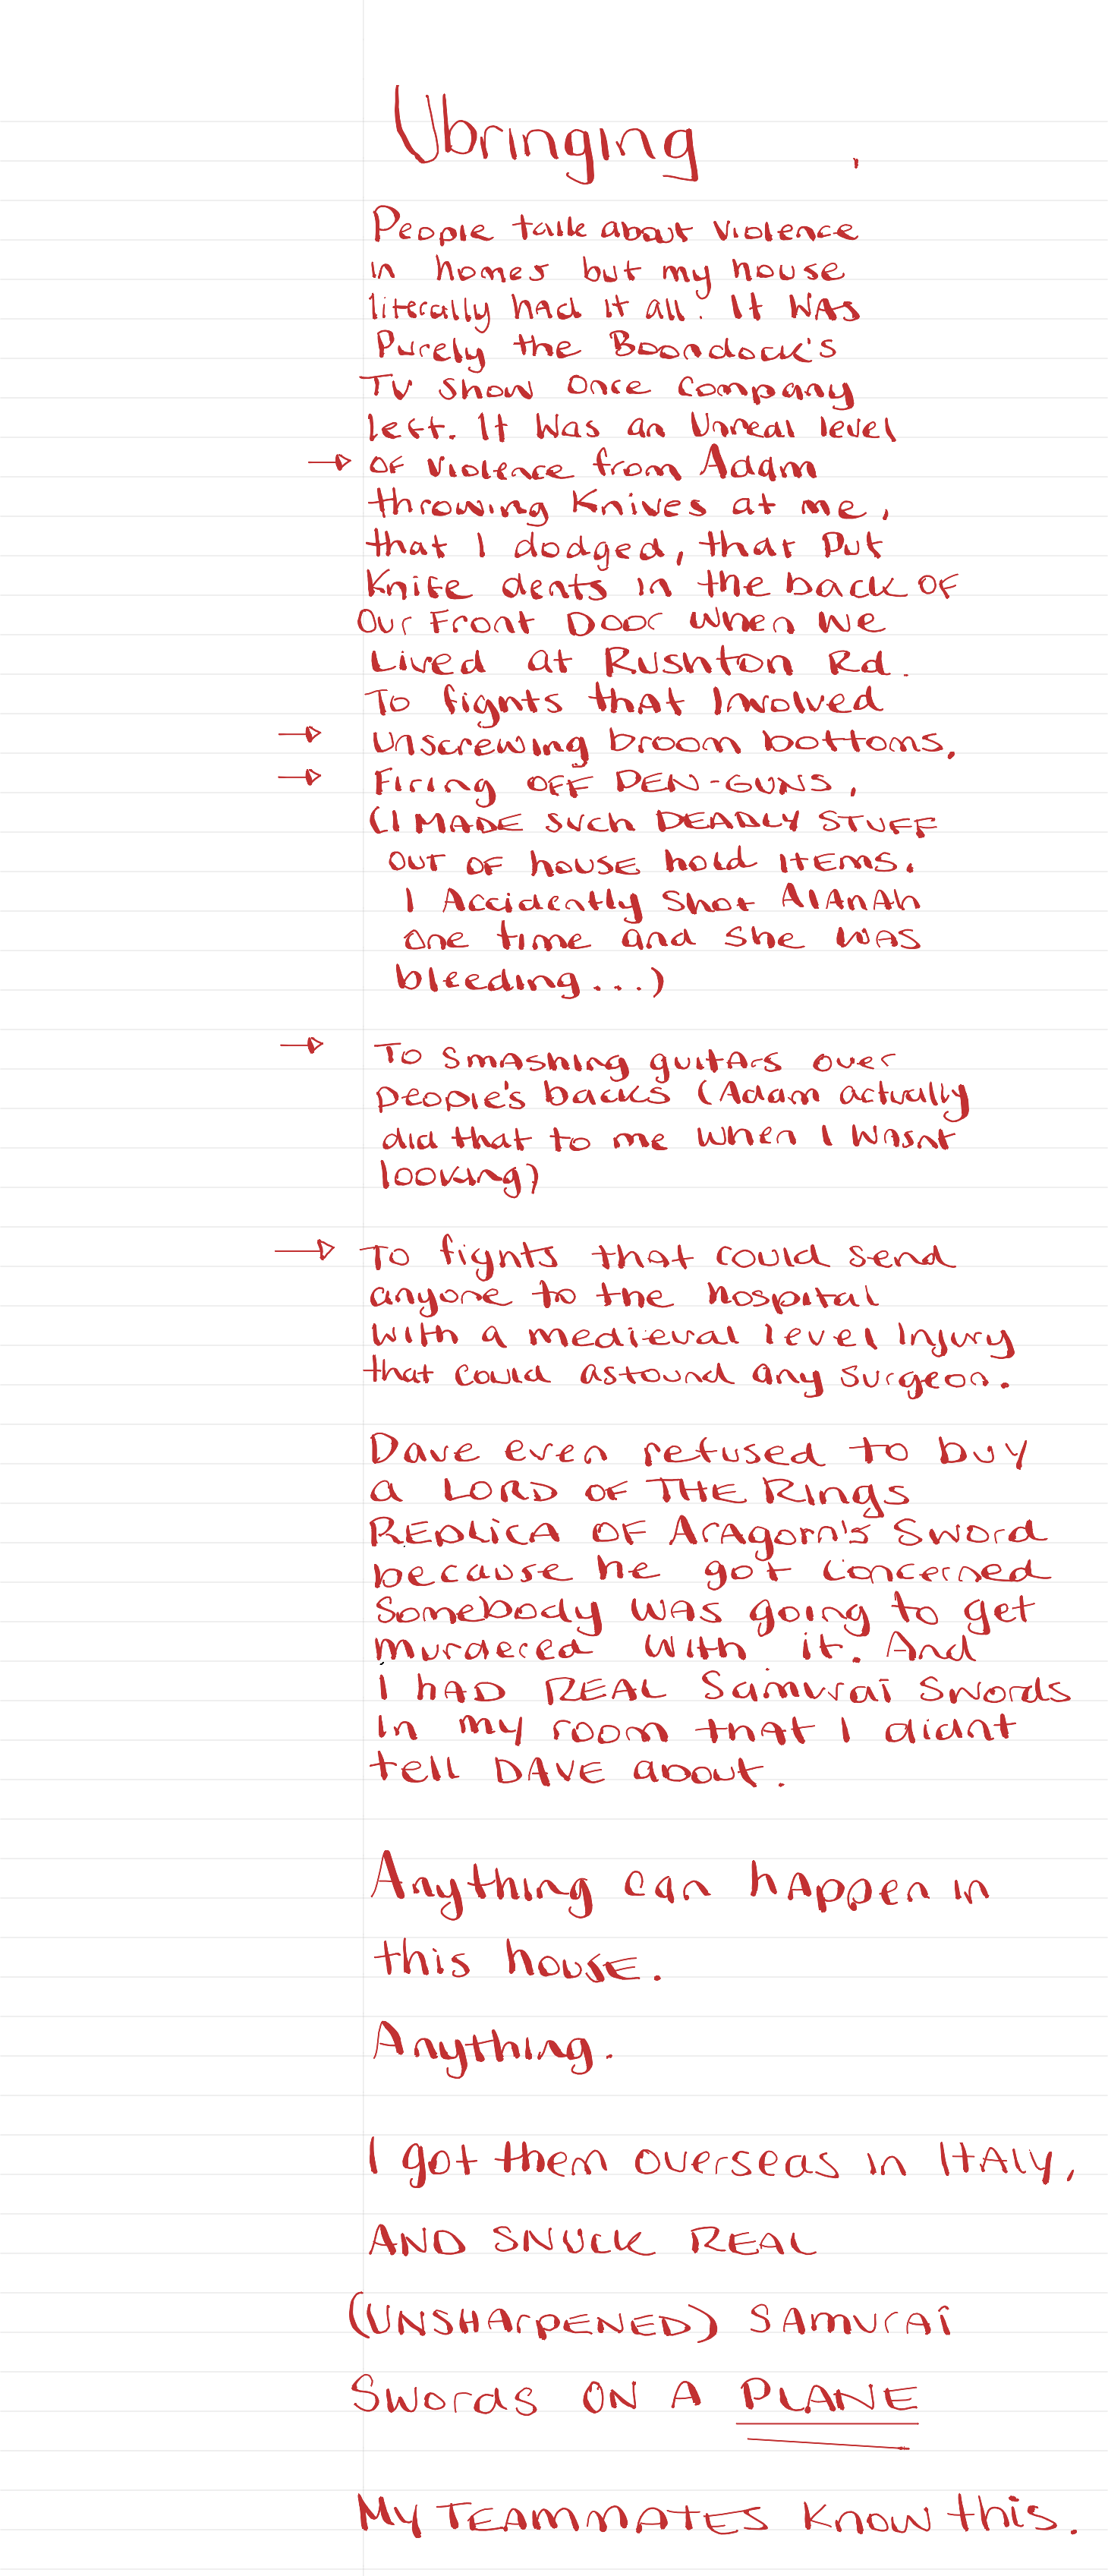 Ubringing
People talk about violence
in homes but my house
literally had it all. It was
Purely the Boondock's
TV show once company
left. It was an unreal level
→ of violence from Adam
throwing knives at me,
that I dodged, that put
knife dents in the back of
our Front Door when we
Lived at Rushton Rd.
To fights that Involved
→ Unscrewing broom bottoms,
→ Firing OFF PEN-GUNS,
(I MADE such DEADLY STUFF
out of house hold ITEMS.
I Accidently Shot AlAnAh
one time and she was
bleeding...)
→ To smashing guitars over
people's backs (Adam actually
did that to me when I wasnt
looking)
→ To fights that could send
anyone to the hospital
with a medieval level Injury
that could astound any surgeon.
Dave even refused to buy
a LORD OF THE Rings
REPLiCA OF Aragorn's Sword
because he got concerned
Somebody was going to get
murdered with it. And
I hAD REAL Samurai Swords
In my room that I didnt
tell DAVE about.
Anything can happen in
this house.
Anything.
I got them overseas in ITALY,
AND SNUCK REAL
(UNSHARPENED) SAMURAi
Swords ON A PLANE
My TEAMMATES know this.